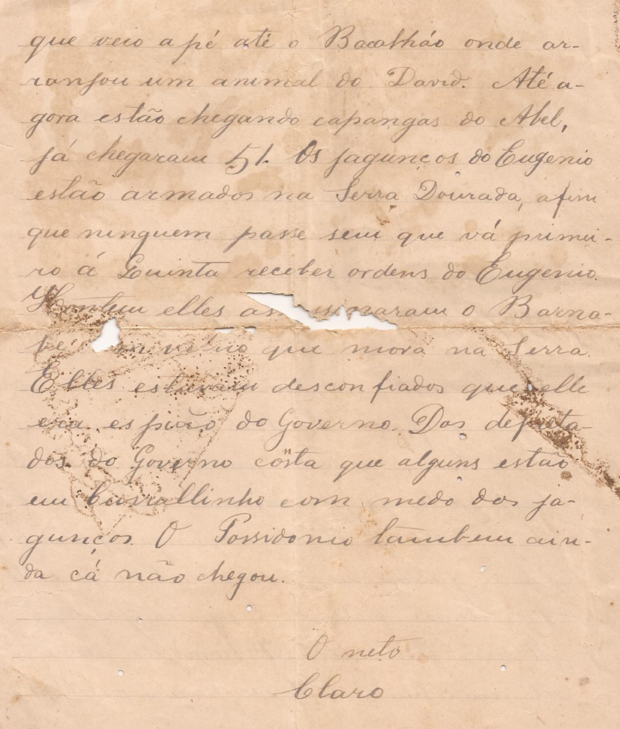 que veio a pé até o Bacalháo onde ar-
ranjou um animal do David. Até a-
gora estão chegando capangas do Abel,
já chegaram 51. Os jagunços do Eugenio
estão armados na Serra Dourada, afim
que ninguem passe sem que vá primei-
ro á Quinta receber ordens do Eugenio.
Hontem elles o Barna-
bé, que mora na Serra.
Elles estavam desconfiados que elle
era espião do Governo. Dos deputa-
dos do Governo cósta que alguns estão
em Curralinho com medo dos ja-
gunços. O Possidonio tambem ain-
da cá não chegou.
O neto
Claro